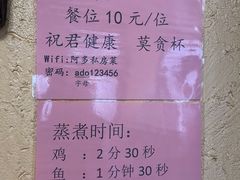 餐位 10 元/位
祝君健康 莫贪杯
Wifi:阿多私房菜
密码: ado123456
字母
蒸煮时间:
鸡 :2 分 30 秒
鱼 :1 分钟 30 秒